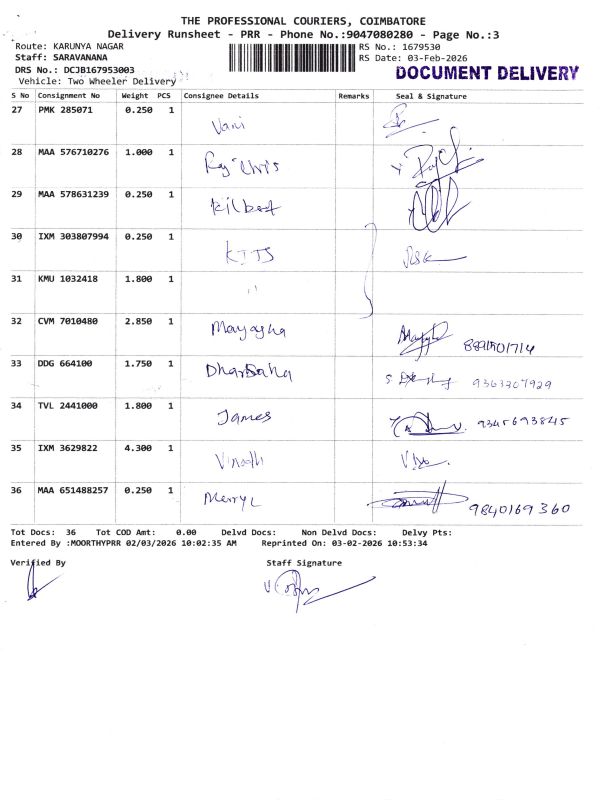 THE PROFESSIONAL COURIERS, COIMBATORE
Delivery Runsheet - PRR - Phone No.:9047080280 - Page No.:3
Route: KARUNYA NAGAR RS No.: 1679530
Staff: SARAVANANA RS Date: 03-Feb-2026
DRS No.: DCJB167953003 DOCUMENT DELIVERY
Vehicle: Two Wheeler Delivery
S No Consignment No Weight PCS Consignee Details Remarks Seal & Signature
27 PMK 285071 0.250 1 Vani
28 MAA 576710276 1.000 1
29 MAA 578631239 0.250 1
30 IXM 303807994 0.250 1
31 KMU 1032418 1.800 1 "
32 CVM 7010480 2.850 1
33 DDG 664100 1.750 1 9363707929
34 TVL 2441000 1.800 1 James 9345693845
35 IXM 3629822 4.300 1 Vinodh
36 MAA 651488257 0.250 1 Merryl 9840169360
Tot Docs: 36 Tot COD Amt: 0.00 Delvd Docs: Non Delvd Docs: Delvy Pts:
Entered By :MOORTHYPRR 02/03/2026 10:02:35 AM Reprinted On: 03-02-2026 10:53:34
Verified By Staff Signature